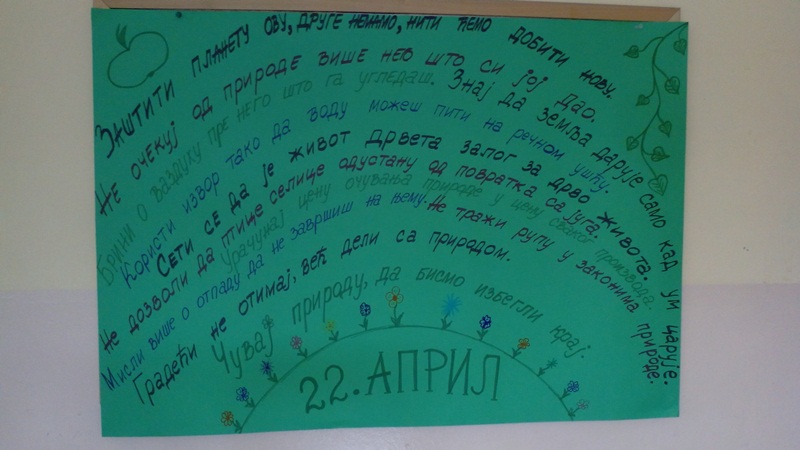 Заштити планету ову, друге немамо, нити ћемо добити нову.
Не очекуј од природе више нег што си јој дао.
Брини о ваздуху пре него што га угледаш. Знај да земља дарује само кад ум царује.
Користи извор тако да воду можеш пити на речном ушћу.
Сети се да је живот дрвета залог за дрво живота.
Не дозволи да птице селице одустану од повратка са југа.
Урачунај цену очувања природе у цену сваког производа.
Мисли више о отпаду да не завршиш на њему. Не тражи рупу у законима природе.
Градећи не отимај, већ дели са природом.
Чувај природу, да бисмо избегли крај.
22. АПРИЛ